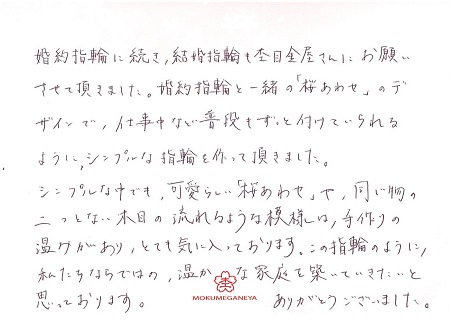 婚約指輪に続き、結婚指輪も杢目金屋さんにお願い
させて頂きました。婚約指輪と一緒の「桜あわせ」のデ
ザインで、仕事中など普段もずっと付けていられる
ように、シンプルな指輪を作って頂きました。
シンプルな中でも、可愛らしい「桜あわせ」や、同じ物の
二つとない木目の流れるような模様は、手作りの
温かみがあり、とても気に入っております。この指輪のように、
私たちならではの、温かな家庭を築いていきたいと
思っております。 ありがとうございました。
MOKUMEGANEYA